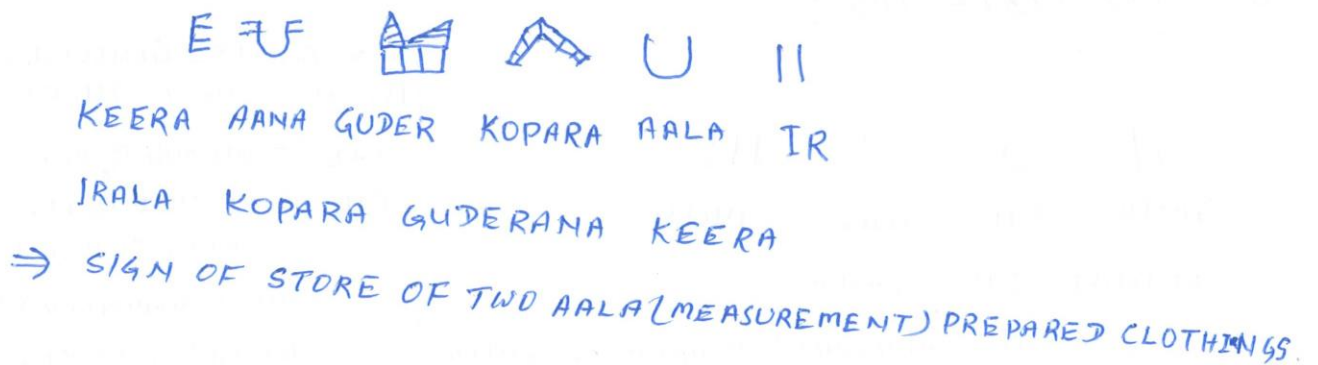 KEERA AANA GUDER KOPARA AALA IR
IRALA KOPARA GUDERANA KEERA
⇒ SIGN OF STORE OF TWO AALA (MEASUREMENT) PREPARED CLOTHINGS.